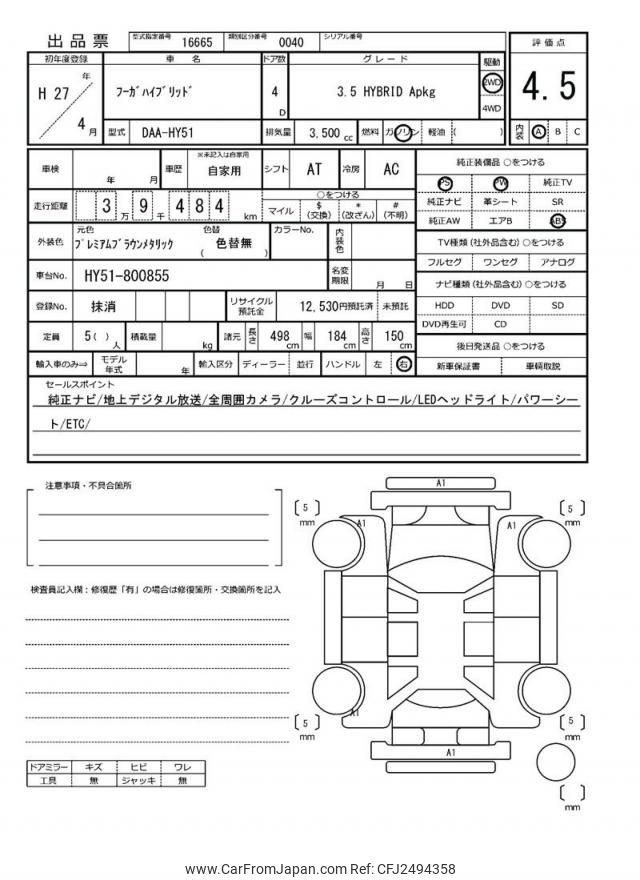 出品票 型式指定番号 16665 類別区分番号 0040 シリアル番号
初年度登録 車名 ドア数 グレード 駆動 評価点
H 27 年 4 月 フーガハイブリッド 4 D 3.5 HYBRID Apkg 2WD 4WD 4.5
型式 DAA-HY51 排気量 3,500 cc 燃料 ガソリン 軽油 ( ) 内装 A B C
車検 年 月 車歴 ※未記入は自家用 自家用 シフト AT 冷房 AC
走行距離 3 万 9 千 4 8 4 km ○をつける
マイル $ (交換) * (改ざん) # (不明)
外装色 元色 プレミアムブラウンメタリック 色替 ( 色替無 ) カラーNo. 内装色
車台No. HY51-800855 名変期限 月 日
登録No. 抹消 リサイクル預託金 12,530円預託済 未預託
定員 5( ) 人 積載量 kg 諸元 長さ 498 cm 幅 184 cm 高さ 150 cm
輸入車のみ⇒ モデル年式 年 輸入区分 ディーラー 並行 ハンドル 左 右
純正装備品 ○をつける
PS PW 純正TV
純正ナビ 革シート SR
純正AW エアB ABS
TV種類 (社外品含む) ○をつける
フルセグ ワンセグ アナログ
ナビ種類 (社外品含む) ○をつける
HDD DVD SD
DVD再生可 CD
後日発送品 ○をつける
新車保証書 車輌取説
セールスポイント
純正ナビ/地上デジタル放送/全周囲カメラ/クルーズコントロール/LEDヘッドライト/パワーシー
ト/ETC/
注意事項・不具合箇所
検査員記入欄：修復歴「有」の場合は修復箇所・交換箇所を記入
ドアミラー キズ ヒビ ワレ
工具 無 ジャッキ 無
A1
5 mm A1 A1 5 mm
A1
5 mm A1 5 mm
mm
www.CarFromJapan.com Ref: CFJ2494358